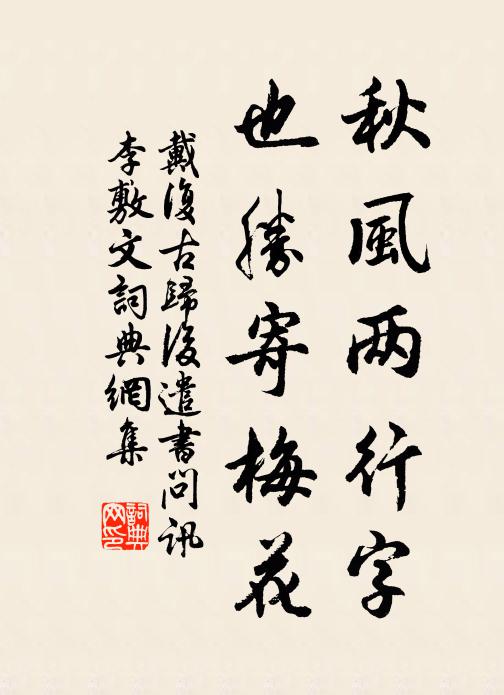 秋風两行字
也勝寄梅花
戴復古歸後遣書問訊
李敷文詞典網集
詞典
网印